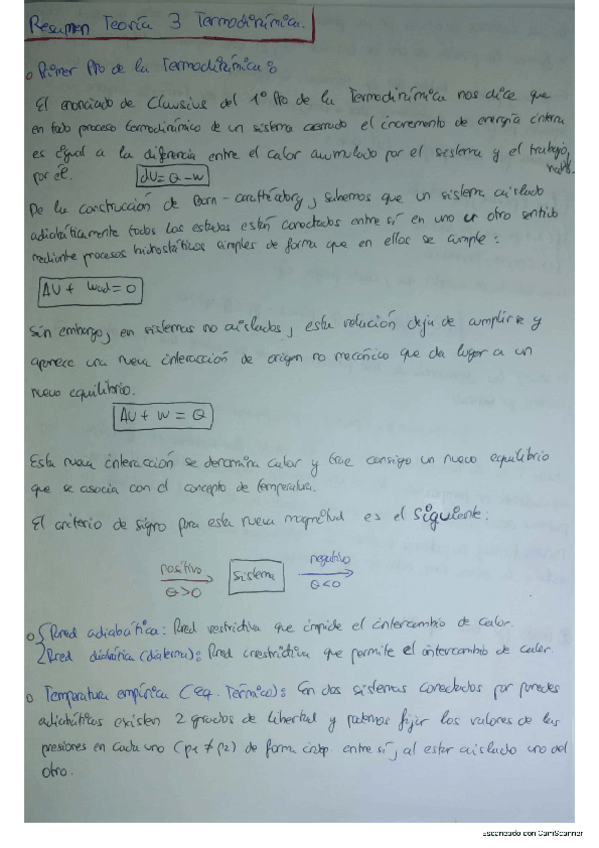 Resumen Teoría 3 Termodinámica.
Primer Ppo de la Termodinámica:
El enunciado de Clausius del 1º Ppo de la Termodinámica nos dice que
en todo proceso termodinámico de un sistema cerrado el incremento de energía interna
es igual a la diferencia entre el calor acumulado por el sistema y el trabajo
por él. dU = Q - W
De la construcción de Born - Carathéodory, sabemos que un sistema aislado
adiabáticamente todos los estados están conectados entre sí en uno u otro sentido
mediante procesos hidrostáticos simples de forma que en ellos se cumple:
ΔU + Wad = 0
Sin embargo, en sistemas no aislados, esta relación deja de cumplirse y
aparece una nueva interacción de origen no mecánico que da lugar a un
nuevo equilibrio.
ΔU + W = Q
Esta nueva interacción se denomina calor y trae consigo un nuevo equilibrio
que se asocia con el concepto de temperatura.
El criterio de signo para esta nueva magnitud es el siguiente:
positivo Q>0 sistema negativo Q<0
Pared adiabática: Pared restrictiva que impide el intercambio de calor.
Pared diabática (diaterma): Pared irrestrictiva que permite el intercambio de calor.
Temperatura empírica (eq. Térmico): En dos sistemas conectados por paredes
adiabáticas existen 2 grados de libertad y podemos fijar los valores de las
presiones en cada uno (p1 ≠ p2) de forma indep. entre sí, al estar aislado uno del
otro.
Escaneado con CamScanner